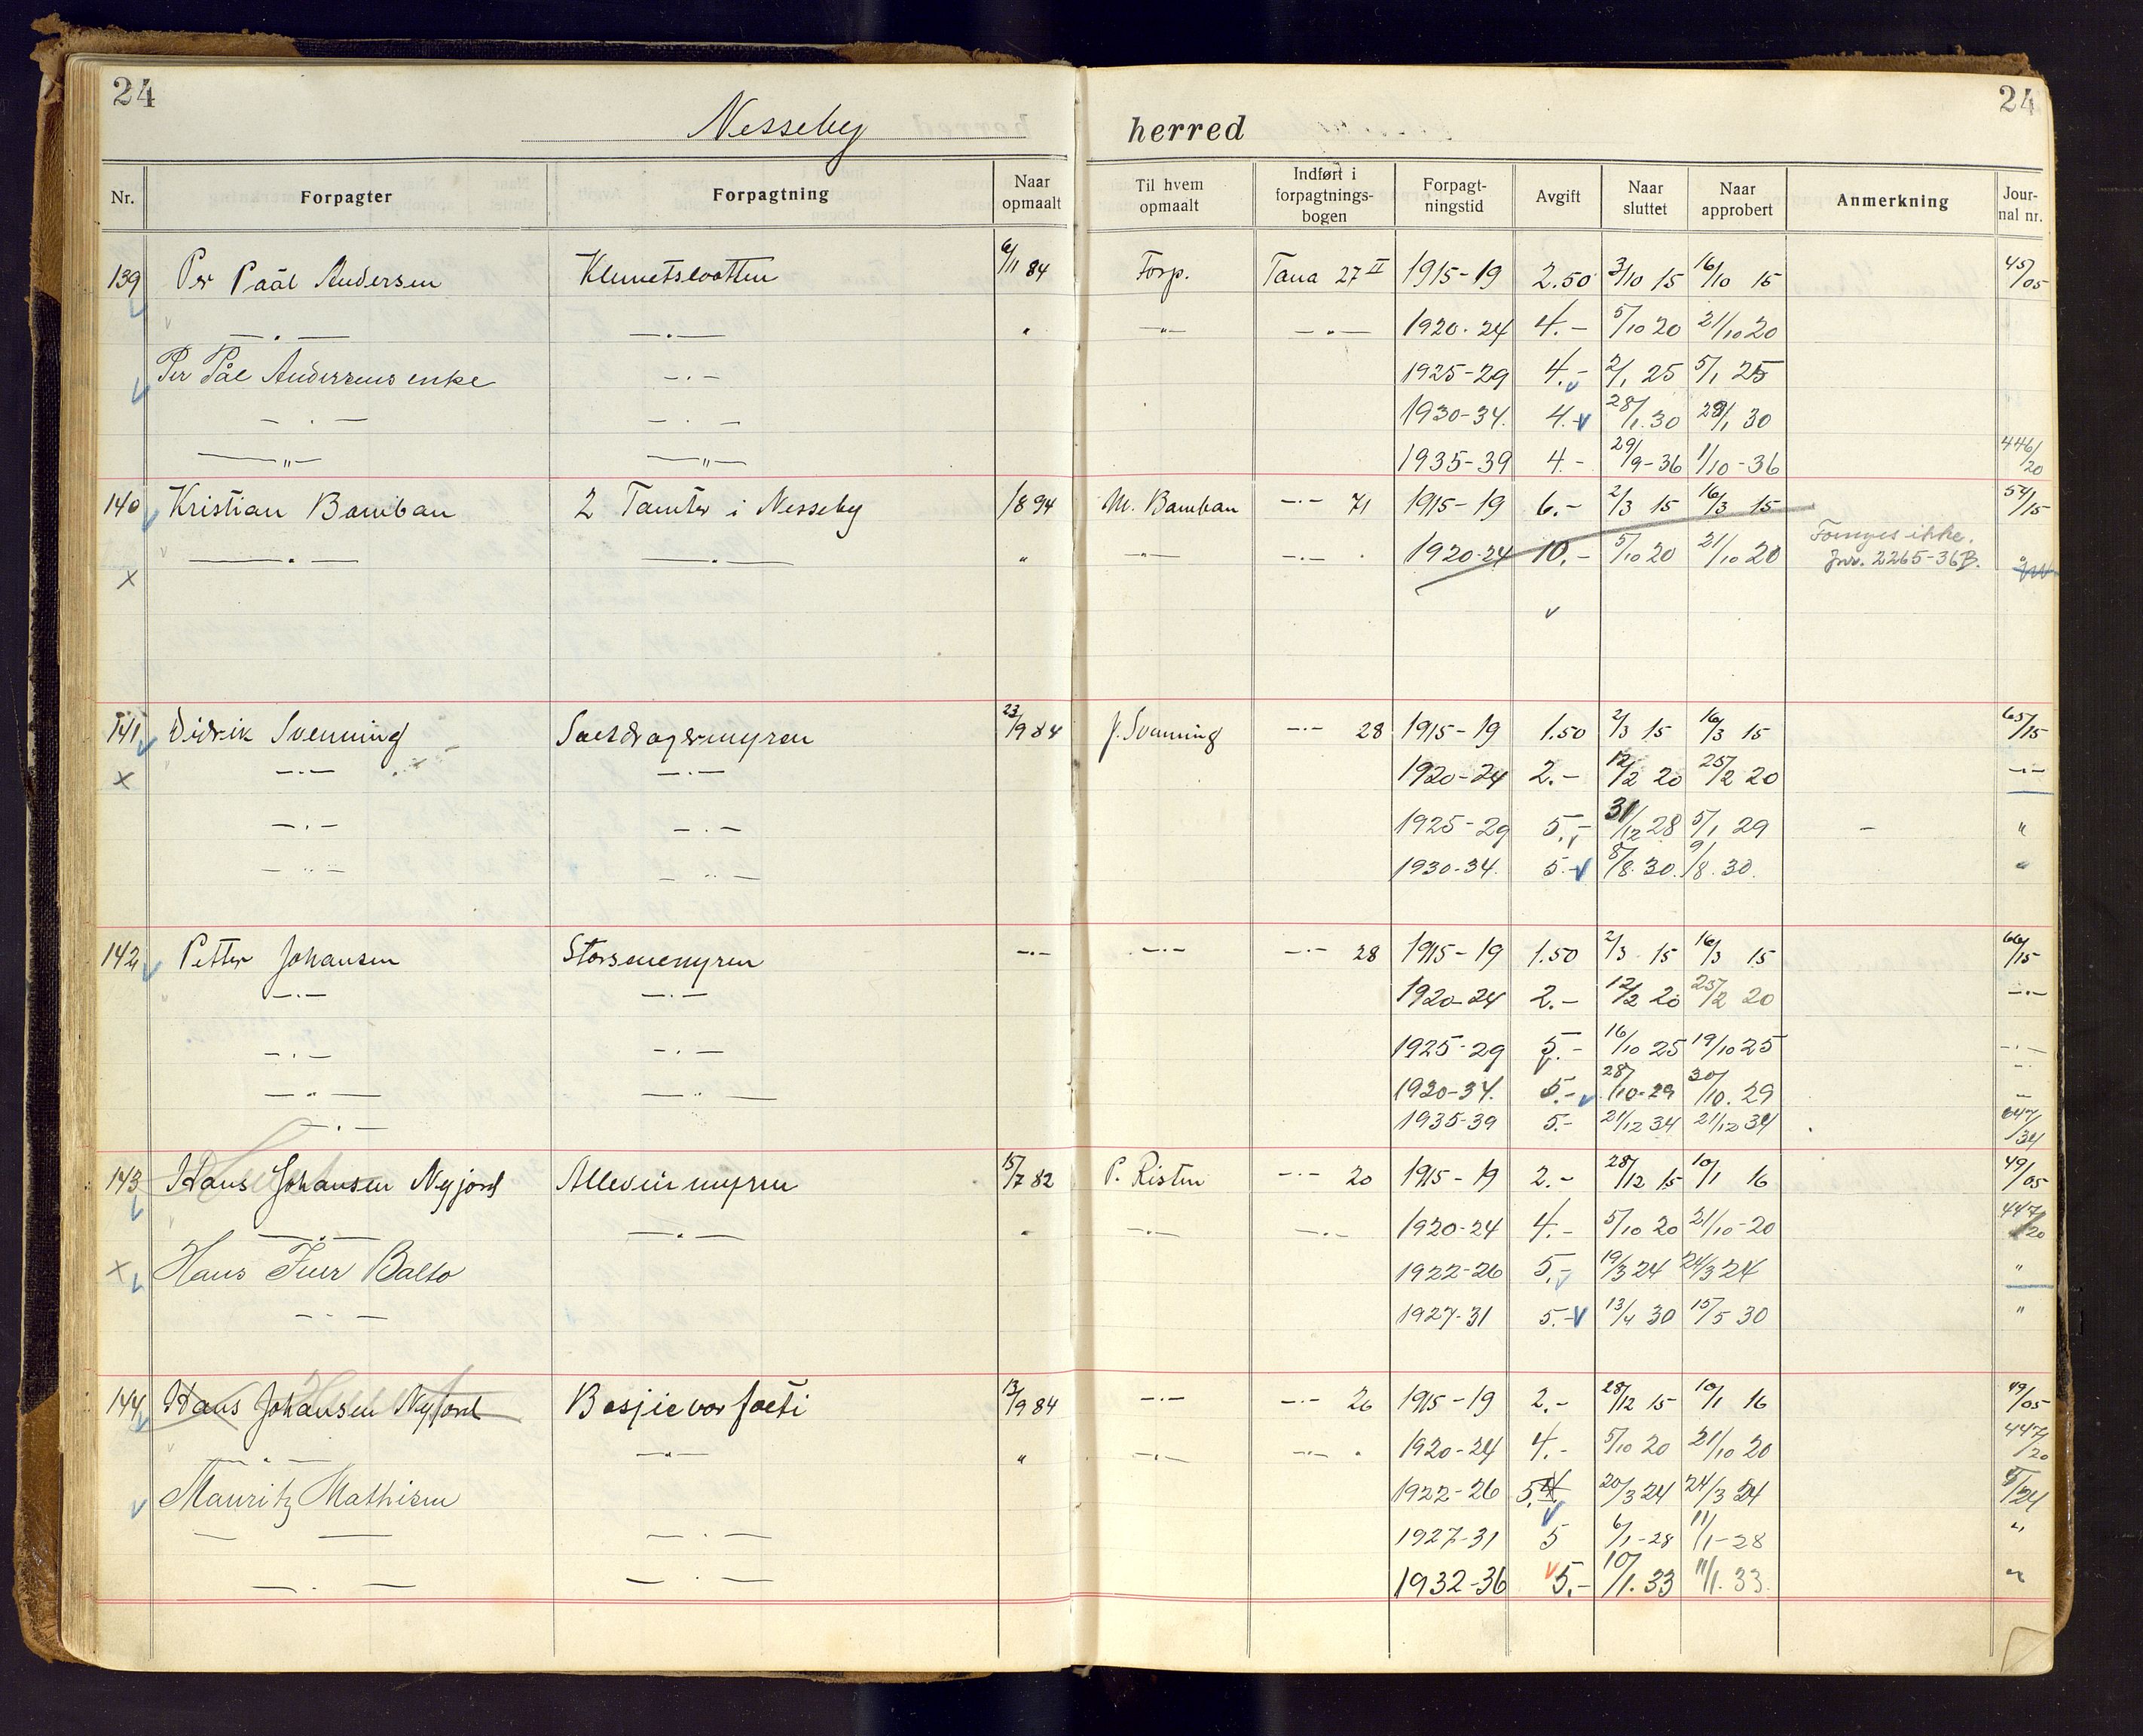 24 Nesseby herred 24
Nr. Forpagter Forpagtning Naar opmaalt Til hvem opmaalt Indført i forpagtnings-bogen Forpagt-ningstid Avgift Naar sluttet Naar approbert Anmerkning Jour-nal nr.
139 Per Paal Andersen Klemetsvatten 6/11 84 Forp. Tana 27 II 1915-19 2.50 3/10 15 16/10 15 45/05
—„— —„— " —„— —„— 1920-24 4.- 5/10 20 21/10 20
Per Pål Andersens enke —„— 1925-29 4.- 2/1 25 5/1 25
—„— —„— 1930-34. 4.- 28/1. 30 29/1 30
—„— —„— 1935-39 4.- 29/9-36 1/10-36 446/20
140 Kristian Bamban 2 Tomter i Nesseby /8 94 M. Bamban —„— 71 1915-19 6.- 2/3 15 16/3 15 54/15
—„— —„— " —„— —„— 1920-24 10.- 5/10 20 21/10 20 Fornyes ikke. "
Jnr. 2265-36B.
141 Didrik Svenning 23/9 84 J. Svenning —„— 28 1915-19 1.50 2/3 15 16/3 15 65/15
—„— —„— 1920-24 2.- 12/2 20 25/2 20 —„—
—„— —„— 1925-29 5.- 31/12 28 5/1 29 "
—„— —„— 1930-34. 5.- 8/8. 30. 9/8. 30. "
142 Petter Johansen —„— —„— —„— 28 1915-19 1.50 2/3 15 16/3 15 66/15
—„— —„— 1920-24 2.- 12/2 20 25/2 20 —„—
—„— —„— 1925-29 5.- 16/10 25 19/10 25 —„—
—„— —„— 1930-34. 5.- 28/10-29 30/10. 29 —„—
—„— 1935-39 5.- 21/12 34 21/12 34 647/34
143 Hans Johansen Nyjord Allevin myren 15/7 82 P. Risten —„— 20 1915-19 2.- 28/12 15 10/1 16 49/05
—„— —„— " —„— —„— 1920-24 4.- 5/10 20 21/10-20 447/20
Hans Iver Balto 1922-26 5.- 19/3 24 24/3 24 "
—„— 1927-31 5.- 13/4 30 15/5 30 "
144 Hans Johansen Nyjord Bosjievor jaeti 13/9 84 —„— —„— 26 1915-19 2.- 28/12 15 10/1 16 49/05
—„— —„— " —„— —„— " 1920-24 4.- 5/10 20 21/10 20 447/20
Mauritz Mathisen 1922-26 5. 20/3 24 24/3 24 5/24
—„— —„— 1927-31 5 6/1-28 11/1-28 "
—„— —„— 1932-36 5.- 10/1. 33 11/1. 33. "